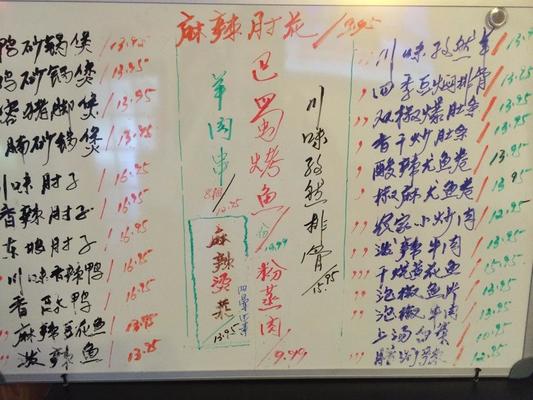 麻辣肘花/9.95
鸭砂锅煲/13.95
砂锅煲/13.95
猪脚煲/13.95
腩砂锅煲/13.95
川味肘子/16.95
香辣肘子/16.95
东坡肘子/16.95
川味香辣鸭/16.95
香酥鸭/16.95
麻辣豆花鱼/13.95
泼辣鱼/13.95
羊肉串
麻辣烫菜
13.95
巴蜀烤鱼
粉蒸肉
9.99
川味孜然排骨
15.95
川味孜然羊/13.9
四季豆焖排骨/13.95
双椒爆肚条/13.95
香干炒肚条/13.95
酸辣尤鱼卷/13.95
椒麻尤鱼卷/13.95
农家小炒肉/12.95
泼辣牛肉/13.95
干烧黄花鱼/15.95
泡椒鱼片/13.95
泡椒牛肉/13.95
上汤白菜/10.95
/12.95